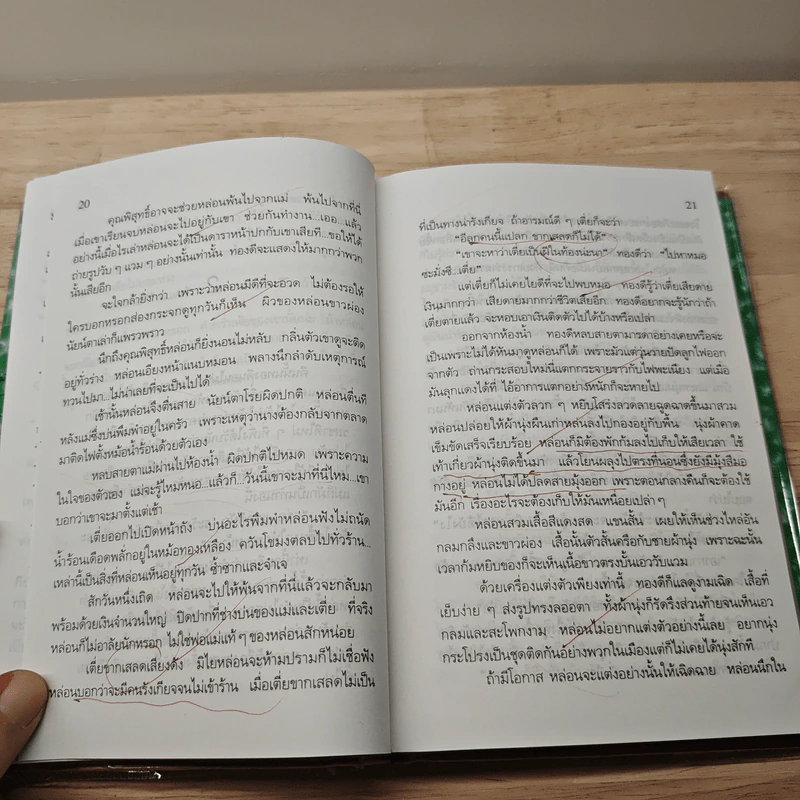 20
คุณพิสุทธิ์อาจจะช่วยหล่อนพ้นไปจากแม่ พ้นไปจากที่นี่
เมื่อเขาเรียนจบหล่อนจะไปอยู่กับเขา ช่วยกันทำงาน...เออ...แล้ว
อย่างนี้เมื่อไรเล่าหล่อนจะได้เป็นดาราหน้าปกกับเขาเสียที...ขอให้ได้
ถ่ายรูปวับ ๆ แวม ๆ อย่างนั้นเท่านั้น ทองดีจะแสดงให้มากกว่าพวก
นั้นเสียอีก
จะไจกล้ายิ่งกว่า เพราะว่าหล่อนมีดีที่จะอวด ไม่ต้องรอให้
ใครบอกหรอกส่องกระจกดูทุกวันก็เห็น ผิวของหล่อนขาวผ่อง
นัยน์ตาเล่าก็แพรวพราว
นึกถึงคุณพิสุทธิ์หล่อนก็ยิ่งนอนไม่หลับ กลิ่นตัวเขาดูจะติด
อยู่ทั่วร่าง หล่อนเอียงหน้าแนบหมอน พลางนึกลำดับเหตุการณ์
ทวนไปมา...ไม่น่าเลยที่จะเป็นไปได้
เช้านั้นหล่อนจึงตื่นสาย นัยน์ตาโรยผิดปกติ หล่อนตื่นที
หลังแม่ซึ่งบ่นพึมพำอยู่ในครัว เพราะเหตุว่านางต้องกลับจากตลาด
มาติดไฟตั้งหม้อน้ำร้อนด้วยตัวเอง
หลบสายตาแม่ผ่านไปห้องน้ำ ผิดปกติไปหมด เพราะความ
ในใจของตัวเอง แม่จะรู้ไหมหนอ...แล้วก็...วันนี้เขาจะมาที่นี่ไหม...เขา
บอกว่าเขาจะมาตั้งแต่เช้า
เตี่ยออกไปเปิดหน้าถัง บ่นอะไรพึมพำหล่อนฟังไม่ถนัด
น้ำร้อนเดือดพลั่กอยู่ในหม้อทองเหลือง ควันโขมงตลบไปทั่วร้าน...
เหล่านี้เป็นสิ่งที่หล่อนเห็นอยู่ทุกวัน ซ้ำซากและจำเจ
สักวันหนึ่งเถิด หล่อนจะไปให้พ้นจากที่นี่แล้วจะกลับมา
พร้อมด้วยเงินจำนวนใหญ่ ปิดปากที่ช่างบ่นของแม่และเตี่ย ที่จริง
หล่อนก็ไม่อาลัยนักหรอก ไม่ใช่พ่อแม่แท้ ๆ ของหล่อนสักหน่อย
เตี่ยขากเสลดเสียงดัง มิไยหล่อนจะห้ามปรามก็ไม่เชื่อฟัง
หล่อนบอกว่าจะมีคนรังเกียจจนไม่เข้าร้าน เมื่อเตี่ยขากเสลดไม่เป็น
21
ที่เป็นทางน่ารังเกียจ ถ้าอารมณ์ดี ๆ เตี่ยก็จะว่า
“อีลูกคนนี้แปลก ขากเสลดก็ไม่ได้”
“เขาจะหาว่าเตี่ยเป็นฝีในท้องน่ะนา” ทองดีว่า “ไปหาหมอ
ซะมั่งซี...เตี่ย”
แต่เตี่ยก็ไม่เคยไยดีที่จะไปพบหมอ ทองดีรู้ว่าเตี่ยเสียดาย
เงินมากกว่า เสียดายมากกว่าชีวิตเสียอีก ทองดีอยากจะรู้นักว่าถ้า
เตี่ยตายแล้ว จะหอบเอาเงินติดตัวไปได้บ้างหรือเปล่า
ออกจากห้องน้ำ ทองดีหลบสายตามารดาอย่างเคยหรือจะ
เป็นเพราะไม่ได้หันมาดูหล่อนก็ได้ เพราะมัวแต่วุ่นวายปัดลูกไฟออก
จากตัว ถ่านกระสอบใหม่นี่แตกกระจายราวกับไฟพะเนียง แต่เมื่อ
มันลุกแดงได้ที่ ไอ้อาการแตกอย่างหนักก็จะหายไป
หล่อนแต่งตัวลวก ๆ หยิบโสร่งลวดลายฉูดฉาดขึ้นมาสวม
หล่อนปล่อยให้ผ้านุ่งผืนเก่าหล่นลงไปกองอยู่กับพื้น นุ่งผ้าคาด
เข็มขัดเสร็จเรียบร้อย หล่อนก็มิต้องพักก้มลงไปเก็บให้เสียเวลา ใช้
เท้าเกี่ยวผ้านุ่งติดขึ้นมา แล้วโยนผลุงไปตรงที่นอนซึ่งยังมีมุ้งสีมอ
กางอยู่ หล่อนไม่ได้ปลดสายมุ้งออก เพราะตอนกลางคืนก็จะต้องใช้
มันอีก เรื่องอะไรจะต้องเก็บให้มันเหนื่อยเปล่า ๆ
หล่อนสวมเสื้อสีแดงสด แขนสั้น เผยให้เห็นช่วงไหล่อัน
กลมกลึงและขาวผ่อง เสื้อนั้นตัวสั้นครือกับชายผ้านุ่ง เพราะฉะนั้น
เวลาก้มหยิบของก็จะเห็นเนื้อขาวตรงบั้นเอววับแวม
ด้วยเครื่องแต่งตัวเพียงเท่านี้ ทองดีก็แลดูงามเฉิด เสื้อที่
เย็บง่าย ๆ ส่งรูปทรงลออตา ทั้งผ้านุ่งก็รัดรึงส่วนท้ายจนเห็นเอว
กลมและสะโพกงาม หล่อนไม่อยากแต่งตัวอย่างนี้เลย อยากนุ่ง
กระโปรงเป็นชุดติดกันอย่างพวกในเมืองแต่ก็ไม่เคยได้นุ่งสักที
ถ้ามีโอกาส หล่อนจะแต่งอย่างนั้นให้เฉิดฉาย หล่อนนึกใน